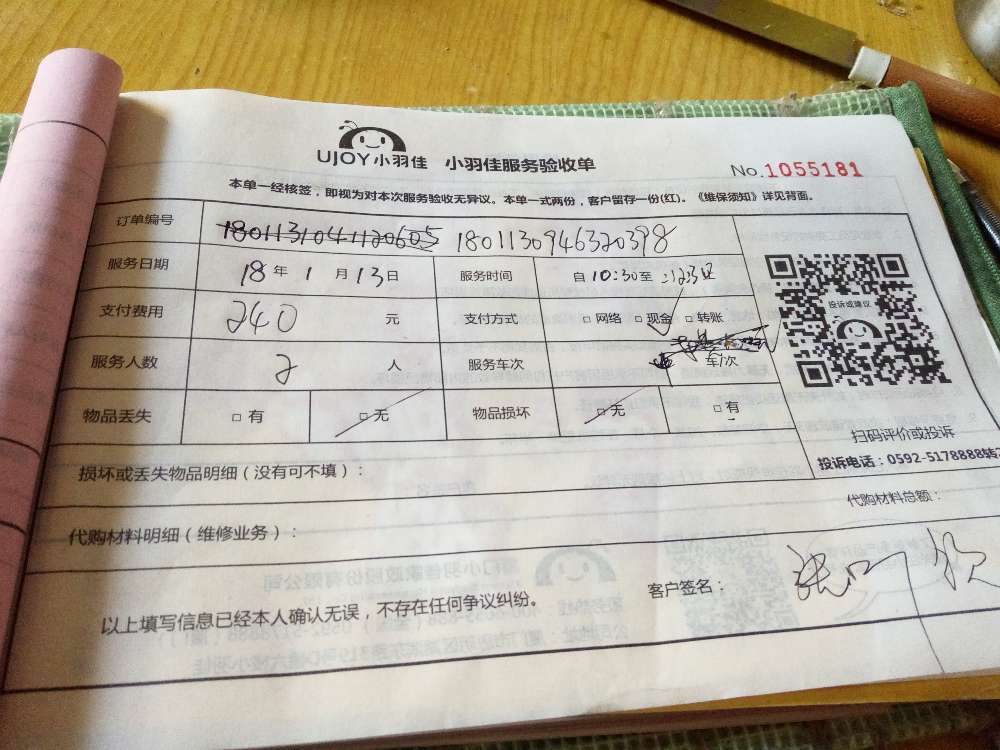 UJOY小羽佳 小羽佳服务验收单
No.1055181
本单一经核签，即视为对本次服务验收无异议。本单一式两份，客户留存一份(红)。《维保须知》详见背面。
订单编号 1801131041120605 1801130946320398
服务日期 18年1月13日 服务时间 自10:30至
支付费用 240元 支付方式 □网络 □现金 □转账
投诉或建议
服务人数 2人 服务车次 车/次
物品丢失 □有 □无 物品损坏 □无 □有
扫码评价或投诉
投诉电话：0592-5178888转
损坏或丢失物品明细（没有可不填）：
代购材料明细（维修业务）： 代购材料总额：
以上填写信息已经本人确认无误，不存在任何争议纠纷。 客户签名：